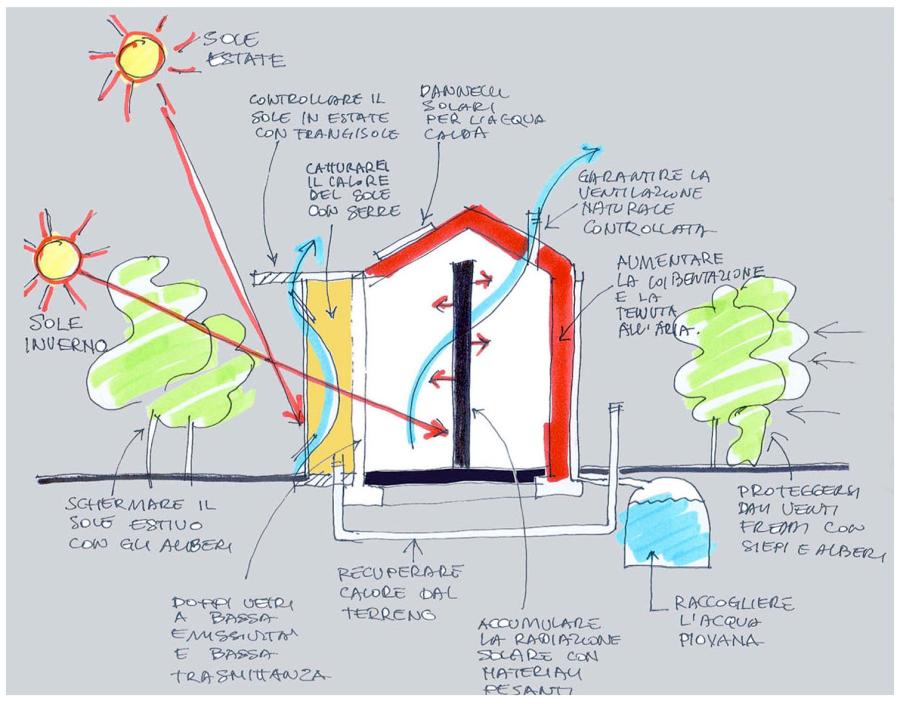 SOLE
ESTATE
CONTROLLARE IL
SOLE IN ESTATE
CON FRANGISOLE
PANNELLI
SOLARI
PER L'ACQUA
CALDA
CATTURARE
IL CALORE
DEL SOLE
CON SERRE
GARANTIRE LA
VENTILAZIONE
NATURALE
CONTROLLATA
AUMENTARE
LA COIBENTAZIONE
E LA
TENUTA
ALL'ARIA.
SOLE
INVERNO
SCHERMARE IL
SOLE ESTIVO
CON GLI ALBERI
DOPPI VETRI
A BASSA
EMISSIVITA'
E BASSA
TRASMITTANZA
RECUPERARE
CALORE DAL
TERRENO
ACCUMULARE
LA RADIAZIONE
SOLARE CON
MATERIALI
PESANTI
RACCOGLIERE
L'ACQUA
PIOVANA
PROTEGGERSI
DAI VENTI
FREDDI CON
SIEPI E ALBERI